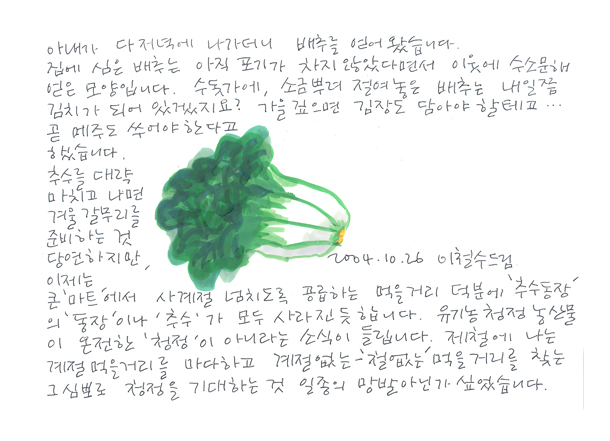 아내가 다저녁에 나가더니 배추를 얻어 왔습니다.
집에 심은 배추는 아직 포기가 차지 않았다면서 이웃에 수소문해
얻은 모양입니다. 수돗가에, 소금뿌려 절여놓은 배추는 내일쯤
김치가 되어 있겠지요? 가을 깊으면 김장도 담아야 할테고…
곧 메주도 쑤어야 한다고
했습니다.
추수를 대략
마치고 나면
겨울 갈무리를
준비하는 것
당연하지만,
2004.10.26 이철수드림
이제는
큰 '마트'에서 사계절 넘치도록 공급하는 먹을거리 덕분에 '추수동장'
의 '동장'이나 '추수'가 모두 사라진듯 합니다. 유기농청정 농산물
이 온전한 '청정'이 아니라는 소식이 들립니다. 제철에 나는
계절먹을거리를 마다하고 계절없는-'절없는' 먹을거리를 찾는
그심뽀로 청정을 기대하는 것 일종의 망발아닌가 싶었습니다.